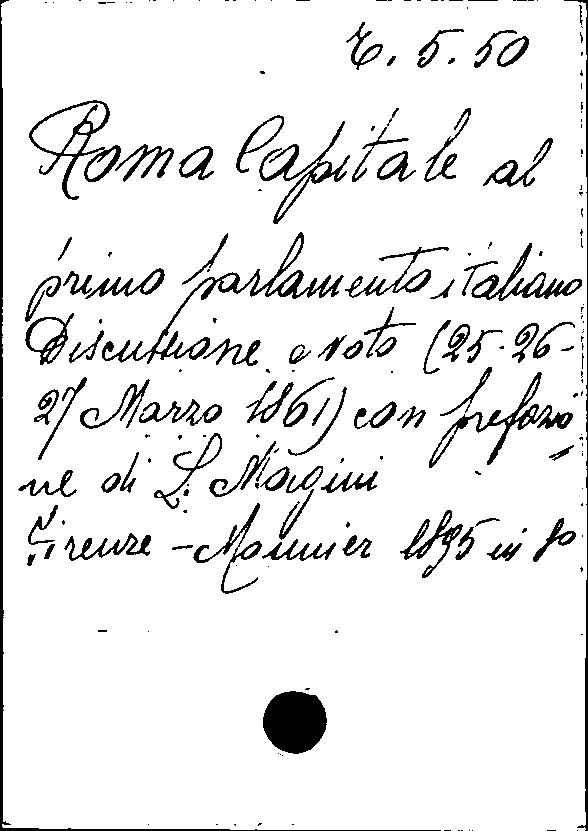 7.5.50
Roma Capitale al
primo parlamento italiano
Discussione e voto (25-26-
27 Marzo 1861) con prefazio
ne di L. Magini
Firenze - Mounier 1895 in 8o